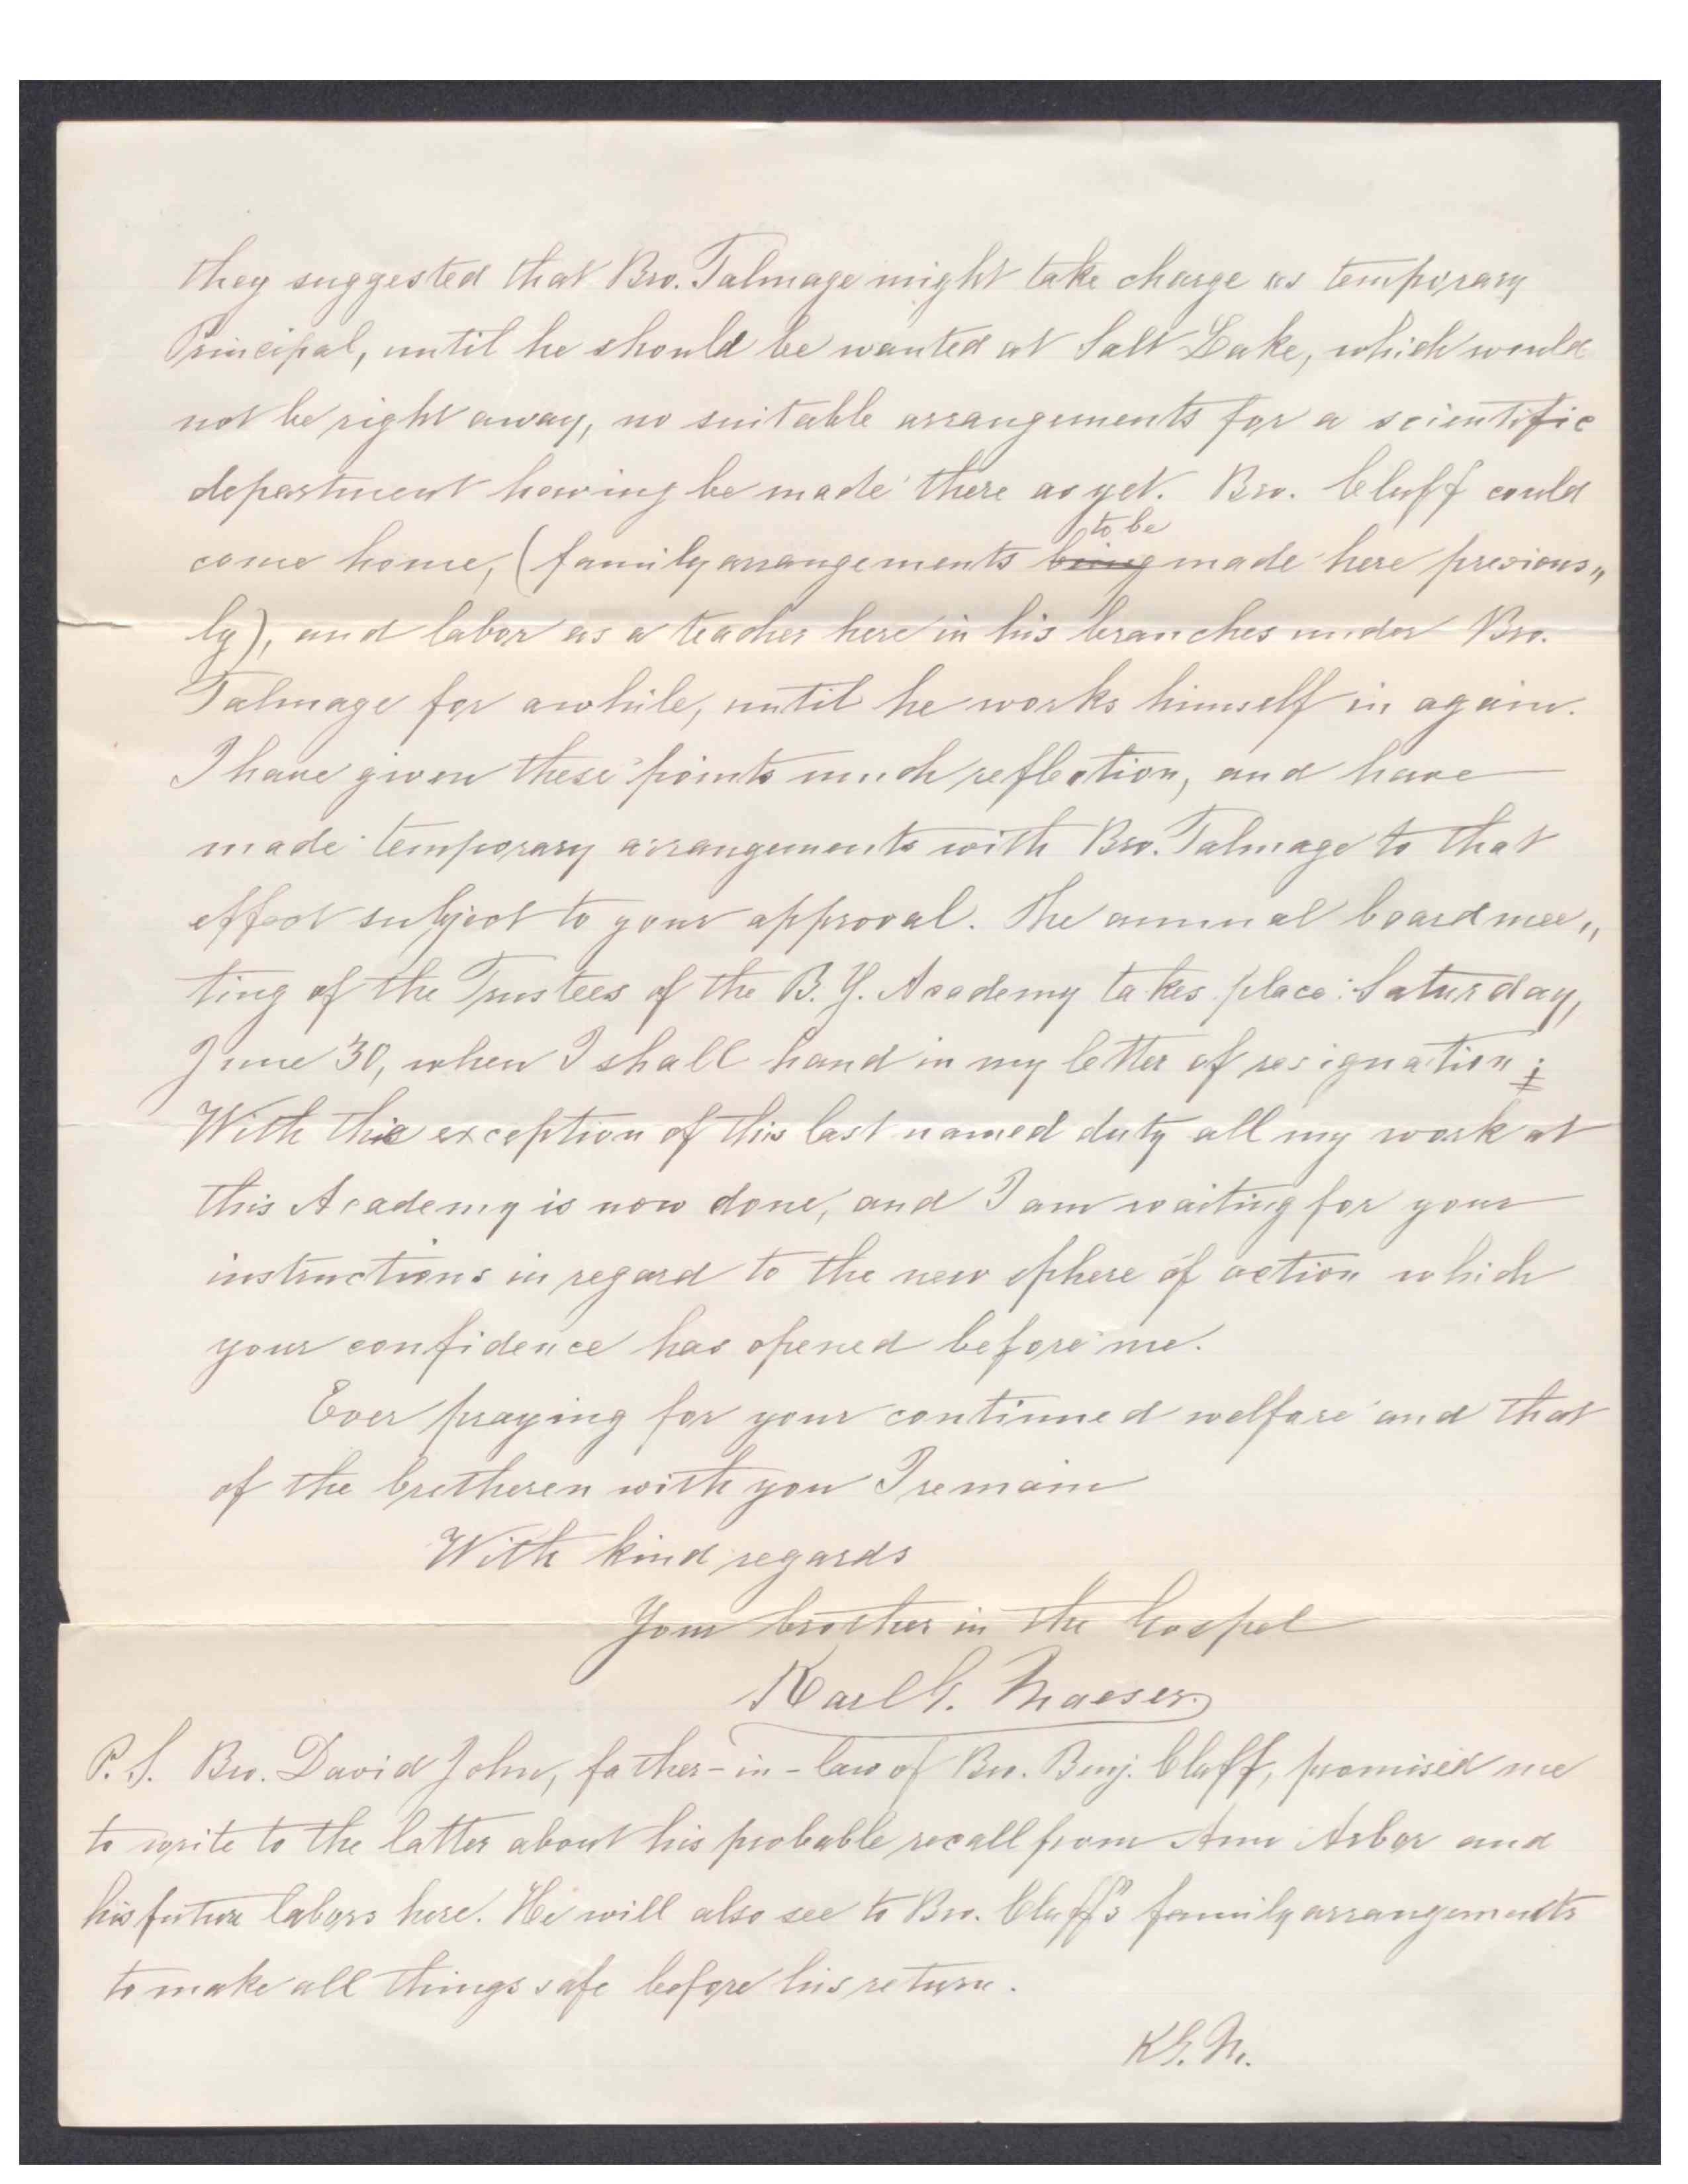 they suggested that Bro. Talmage might take charge as temporary
Principal, until he should be wanted at Salt Lake, which would
not be right away, no suitable arrangements for a scientific
department having be made there as yet. Bro. Cluff could
to be
come home, (family arrangements being made here previous„
ly), and labor as a teacher here in his branches under Bro.
Talmage for awhile, until he works himself in again.
I have given these points much reflection, and have
made temporary arrangements with Bro. Talmage to that
effect subject to your approval. The annual board mee„
ting of the Trustees of the B. Y. Academy takes place: Saturday,
June 30, when I shall hand in my letter of resignation;
With the exception of this last named duty all my work at
this Academy is now done, and I am waiting for your
instructions in regard to the new sphere of action which
your confidence has opened before me.
Ever praying for your continued welfare and that
of the bretheren with you I remain
With kind regards
Your brother in the Gospel
Karl G. Maeser.
P. S. Bro. David John, father-in-law of Bro. Benj. Cluff, promised me
to write to the latter about his probable recall from Ann Arbor and
his future labors here. He will also see to Bro. Cluff's family arrangements
to make all things safe before his return.
K. G. M.